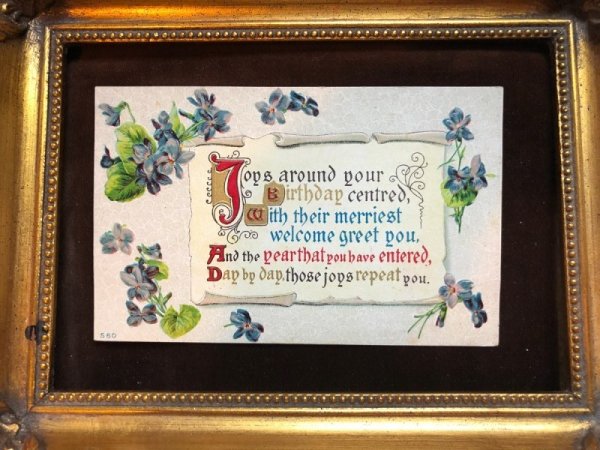 Joys around your
Birthday centred,
With their merriest
welcome greet you,
And the year that you have entered,
Day by day, those joys repeat you.
560